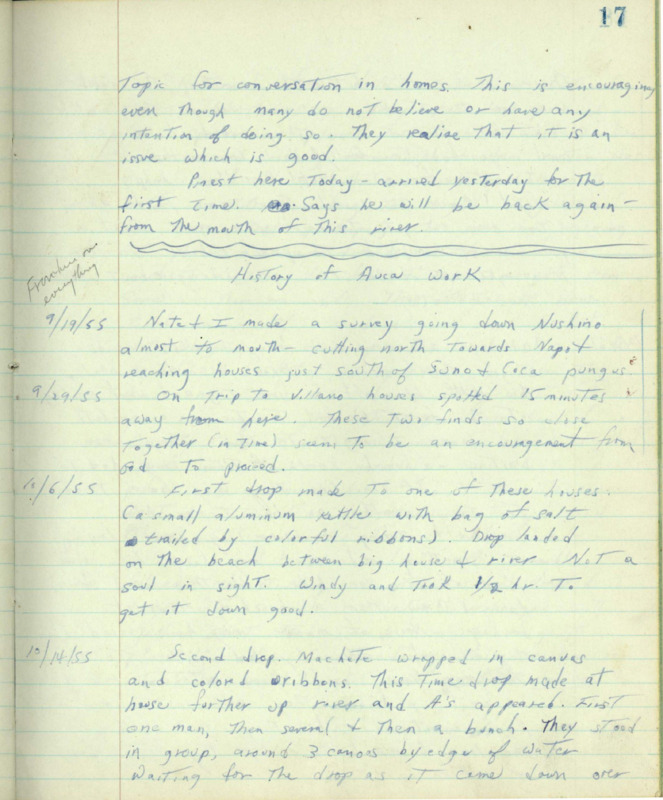 17
Topic for conversation in homes. This is encouraging
even though many do not believe or have any
intention of doing so. They realize that it is an
issue which is good.
Priest here Today - arrived yesterday for the
first time. Says he will be back again -
from the mouth of this river.
History of Auca Work
From here on
everything
9/19/55 Nate & I made a survey going down Nushino
almost to mouth - cutting north towards Napo &
reaching houses just south of Suno & Coca pungus.
9/29/55 On Trip to Villano houses spotted 15 minutes
away from here. These Two finds so close
Together (in Time) seem To be an encouragement from
God To proceed.
10/6/55 First drop made To one of These houses.
(a small aluminum kettle with bag of salt
trailed by colorful ribbons). Drop landed
on the beach between big house & river Not a
soul in sight. Windy and Took 1/2 hr. To
get it down good.
10/14/55 Second drop. Machete wrapped in canvas
and colored ribbons. This Time drop made at
house further up river and A's appeared. First
one man, Then several & Then a bunch. They stood
in group, around 3 canoes by edge of water
Waiting for The drop as it came down over